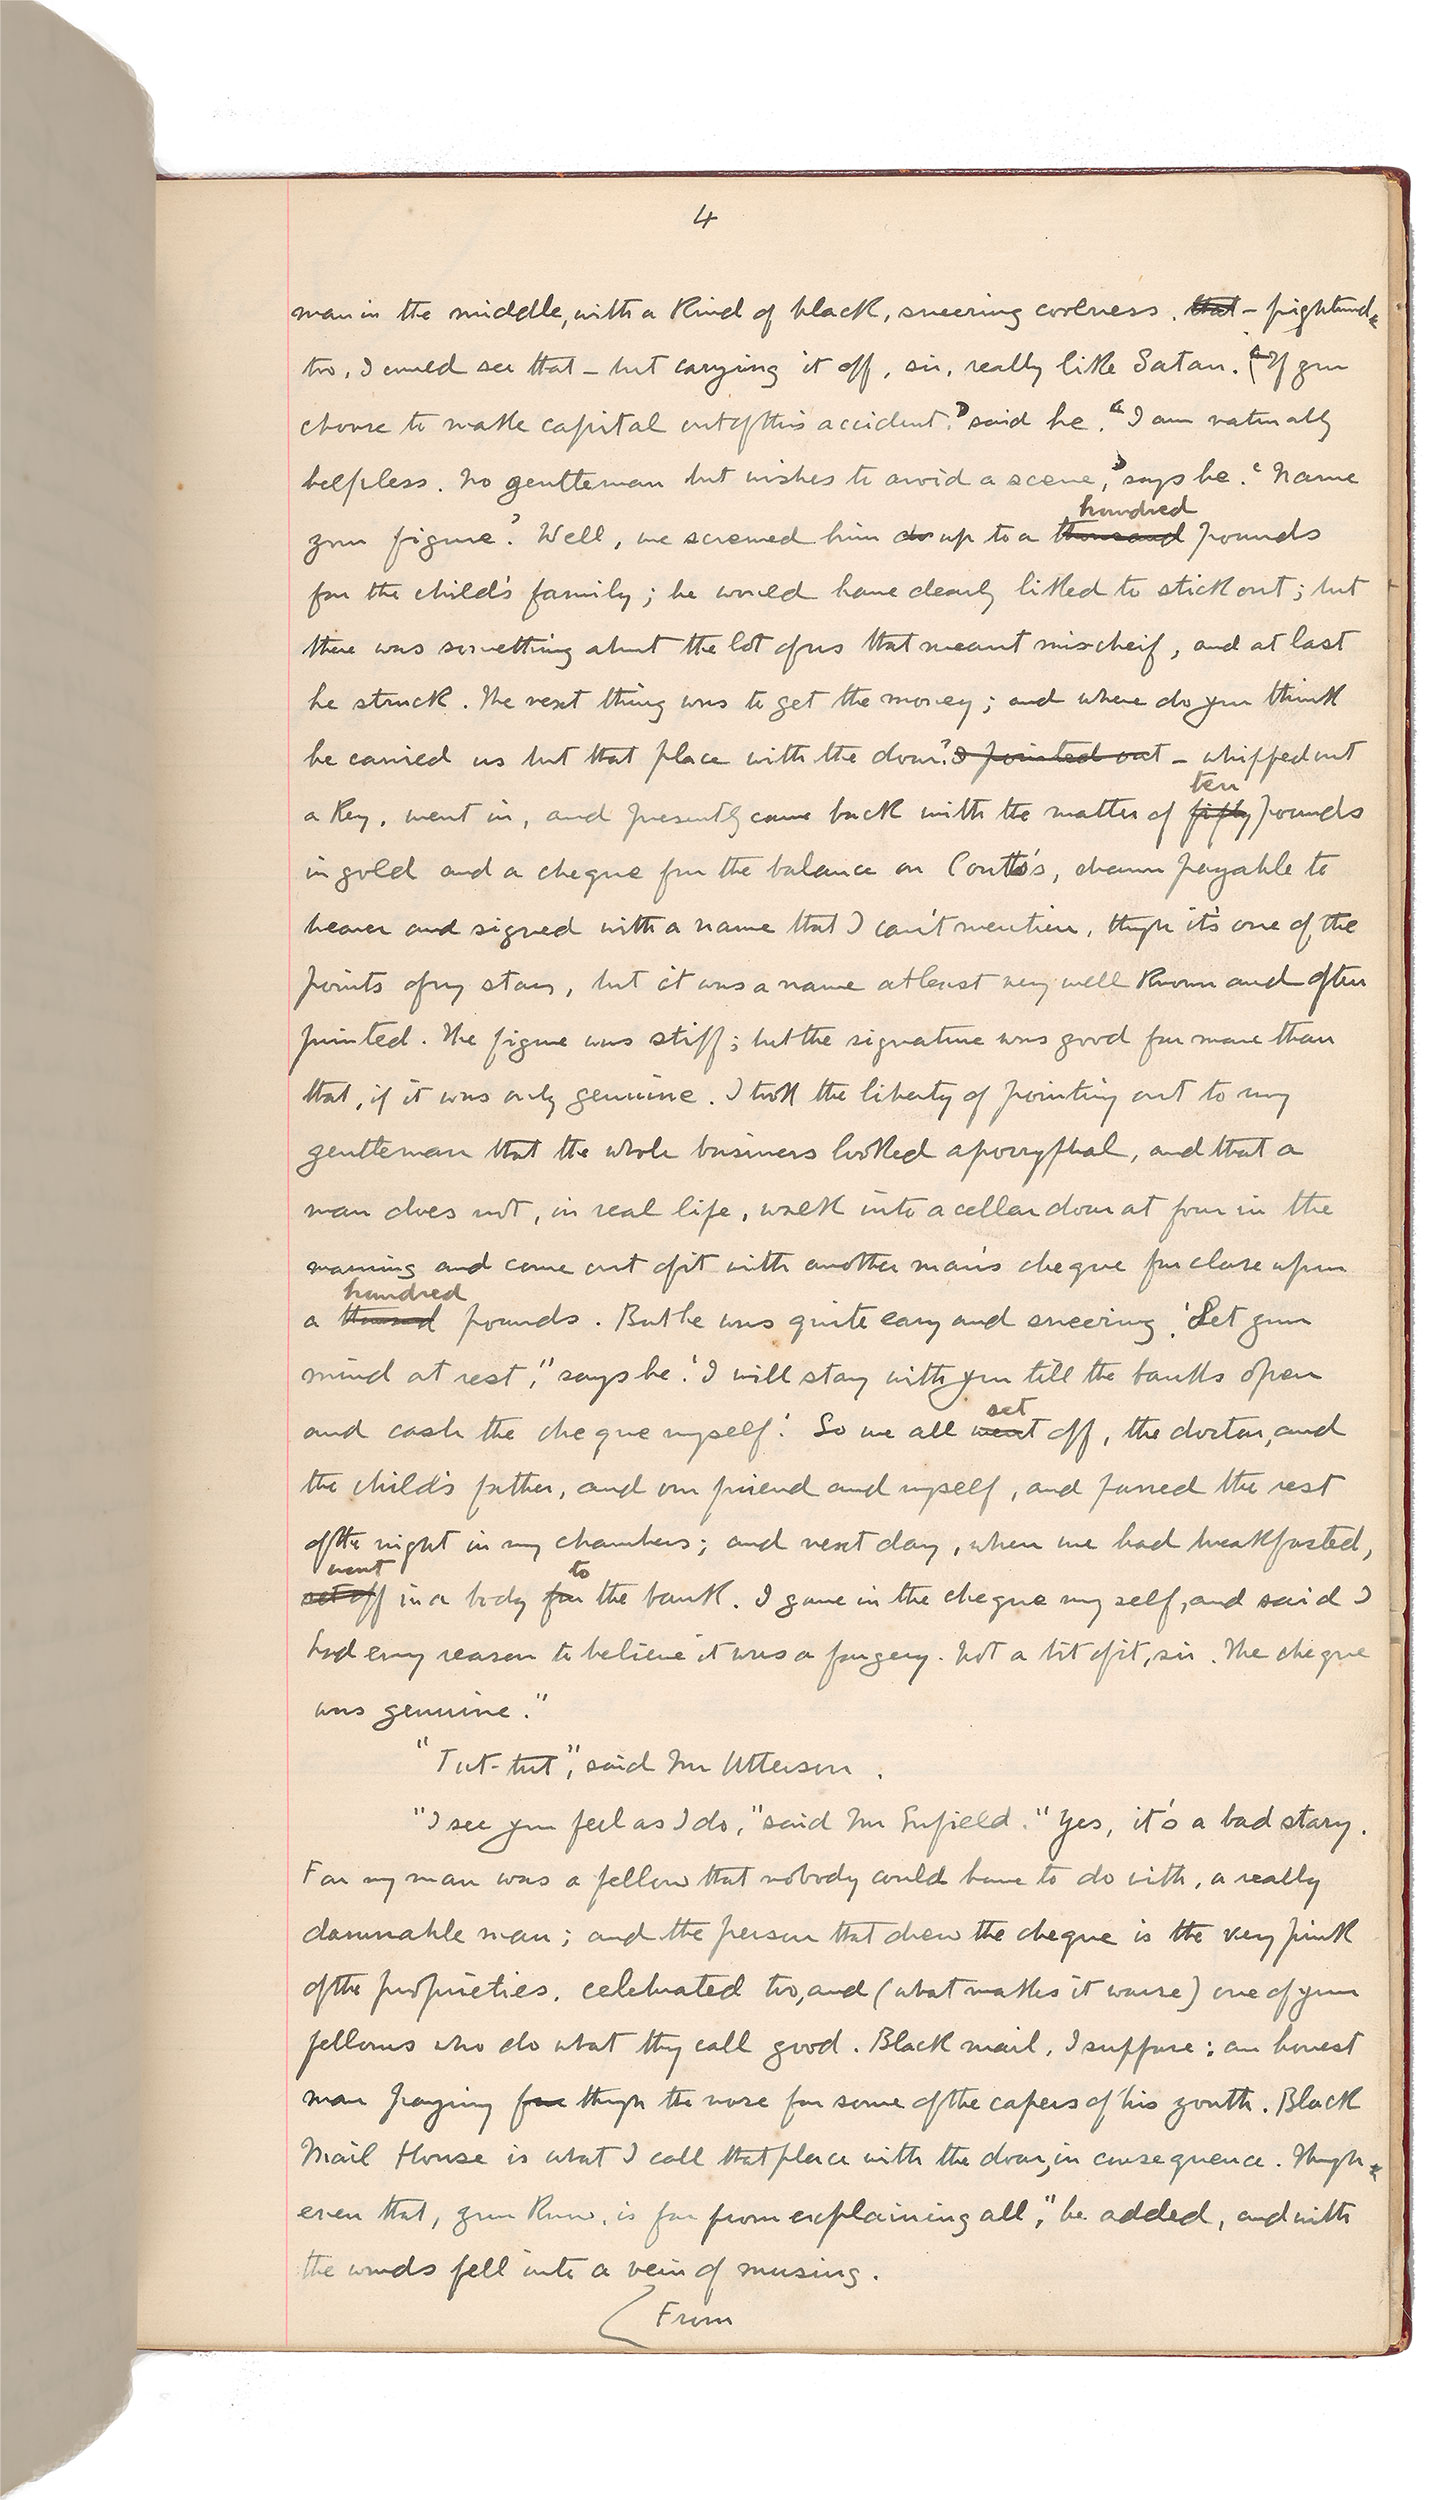 4
man in the middle, with a kind of black, sneering coolness. that – frightened
too, I could see that – but carrying it off, sir, really like Satan. 'If you
choose to make capital out of this accident,' said he, 'I am naturally
helpless. No gentleman but wishes to avoid a scene,' says he. 'Name
hundred
your figure.' Well, we screwed him up to a thousand pounds
for the child's family; he would have clearly liked to stick out; but
there was something about the lot of us that meant mischeif, and at last
he struck. The next thing was to get the money; and where do you think
he carried us but that place with the door? I pointed out – whipped out
ten
a key, went in, and presently came back with the matter of fifty pounds
in gold and a cheque for the balance on Coutts's, drawn payable to
bearer and signed with a name that I can't mention, though it's one of the
points of my story, but it was a name at least very well known and often
printed. The figure was stiff; but the signature was good for more than
that, if it was only genuine. I took the liberty of pointing out to my
gentleman that the whole business looked apocryphal, and that a
man does not, in real life, walk into a cellar door at four in the
morning and come out of it with another man's cheque for close upon
hundred
a thousand pounds. But he was quite easy and sneering. 'Set your
mind at rest," says he. 'I will stay with you till the banks open
set
and cash the cheque myself.' So we all went off, the doctor, and
the child's father, and our friend and myself, and passed the rest
of the night in my chambers; and next day, when we had breakfasted,
went to
set off in a body for the bank. I gave in the cheque myself, and said I
had every reason to believe it was a forgery. Not a bit of it, sir. The cheque
was genuine."
"Tut-tut", said Mr Utterson.
"I see you feel as I do," said Mr Enfield. "Yes, it's a bad story.
For my man was a fellow that nobody could have to do with, a really
damnable man; and the person that drew the cheque is the very pink
of the proprieties, celebrated too, and (what makes it worse) one of your
fellows who do what they call good. Black mail, I suppose; an honest
man paying for through the nose for some of the capers of his youth. Black
Mail House is what I call that place with the door, in consequence. Though
even that, you know, is far from explaining all," he added, and with
the words fell into a vein of musing.
From